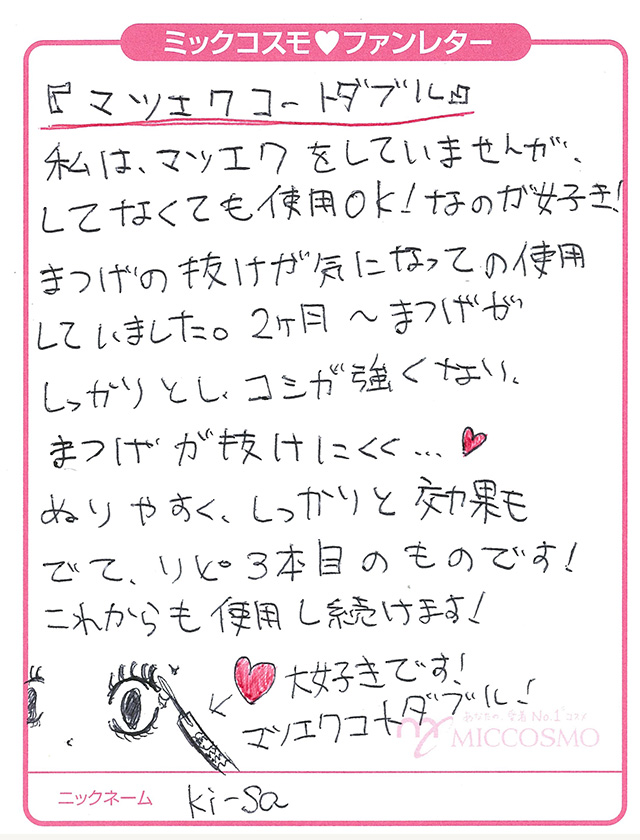 ミックコスモ♥ファンレター
『マツエクコートダブル』
私は、マツエクをしていませんが、
してなくても使用OK!なのが好き!
まつげの抜けが気になっての使用
していました。2ヶ月〜まつげが
しっかりとし、コシが強くなり、
まつげが抜けにくく…♥
ぬりやすく、しっかりと効果も
でて、リピ3本目のものです!
これからも使用し続けます!
♥大好きです!
マツエクコートダブル!
あなたの、愛着No.1コスメ
MICCOSMO
ニックネーム ki-sa